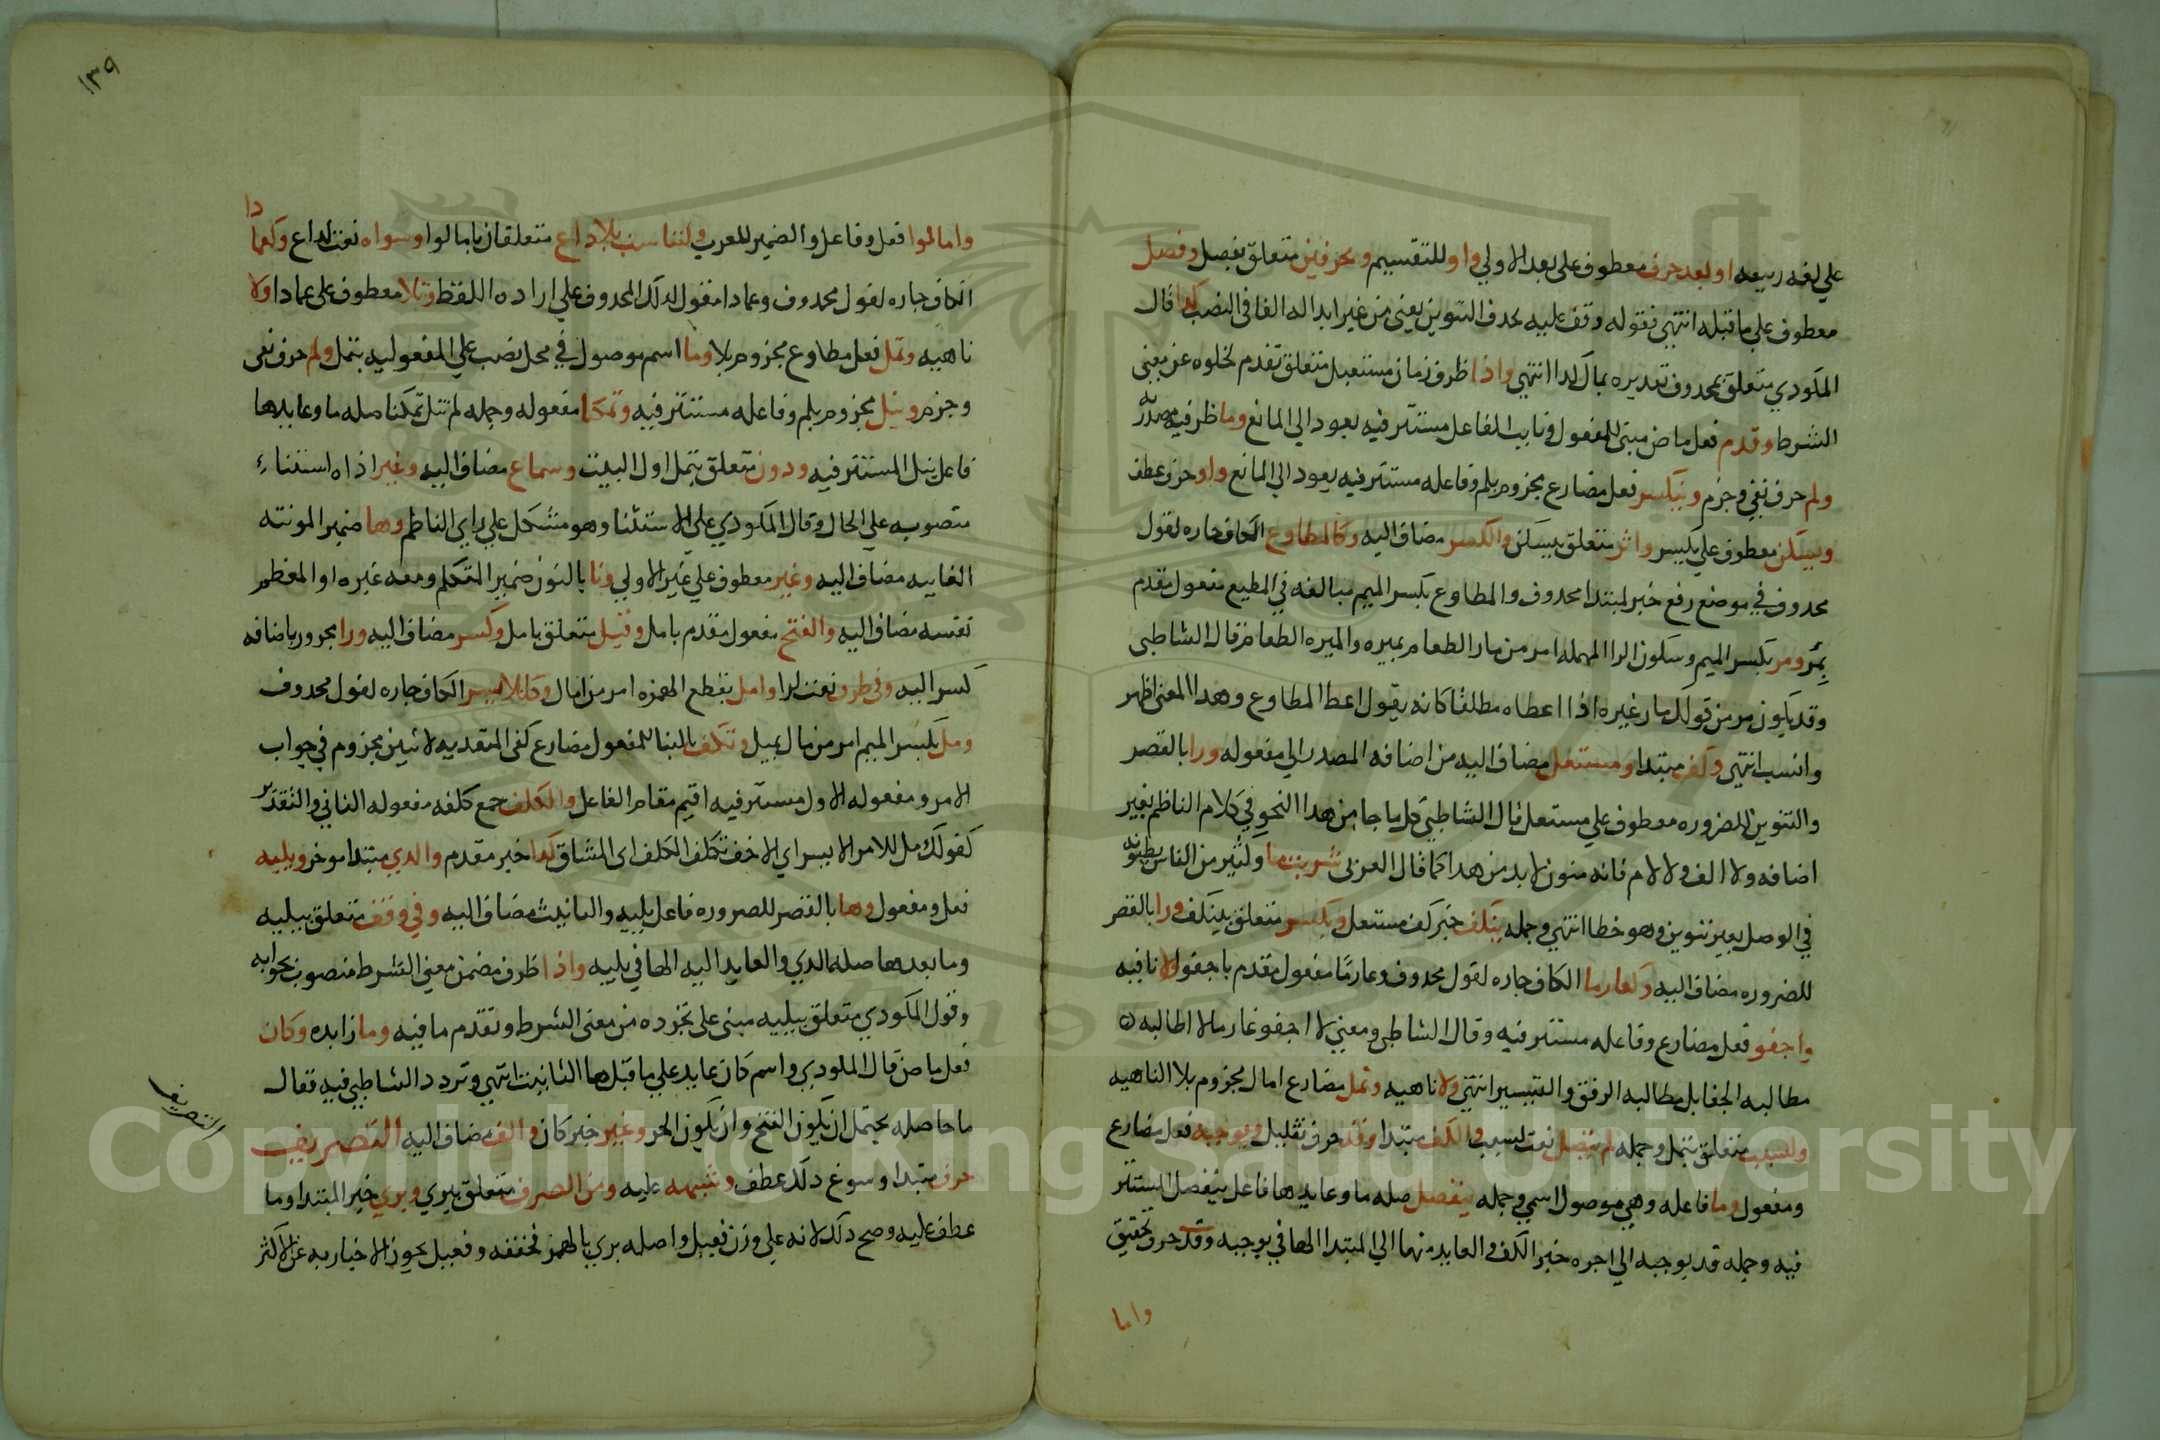 علي لغه ربيعه او بعد حرف معطوف علي بعد الاولي واو للتقسيم وبحرفين متعلق بفصل وفصل
معطوف علي ما قبله انتهي فقوله وقف عليه بحذف التنوين يعني من غير ابداله الفا في النصب كذا قال
المكودي متعلق بمحذوف تقديره يمال كذا انتهي واذا ظرف زمان مستقبل متعلق بقدم لخلوه عن معني
الشرط وقدم فعل ماض مبني للمفعول ونايب الفاعل مستتر فيه يعود الي المانع وما ظرفيه مصدريه
ولم حرف نفي وجزم وينكسر فعل مضارع مجزوم بلم وفاعله مستتر فيه يعود الي المانع واو حرف عطف
ويسكن معطوف علي يكسر واثر متعلق بيسكن والكسر مضاف اليه وكالمطاوع الكاف جاره لقول
محذوف في موضع رفع خبر لمبتدا محذوف والمطاوع بكسر الميم مبالغه في المطيع مفعول مقدم
بمر ومر بكسر الميم وسكون الرا المهمله امر من مار الطعام يميره والميره الطعام قال الشاطبي
وقد يكون مر من قولك مار غيره اذا اعطاه مطلقا كانه يقول اعط المطاوع وهذا المعني اظهر
وانسب انتهي وكف مبتدا ومستعل مضاف اليه من اضافه المصدر الي مفعوله ورا بالقصر
والتنوين للضروره معطوف علي مستعل قال الشاطبي كل ما جا من هذا النحو في كلام الناظم بغير
اضافه ولا الف ولا لام فانه منون لا بد من هذا كما قال العربي شربت ما وكثير من الناس يظنونه
في الوصل بغير تنوين وهو خطا انتهي وجمله ينكف خبر كف مستعل وبكسر متعلق بينكف ورا بالقصر
للضروره مضاف اليه وكغارما الكاف جاره لقول محذوف وغارما مفعول مقدم باجفو لا نافيه
واجفو فعل مضارع وفاعله مستتر فيه وقال الشاطبي ومعني لا اجفو غارما لا اطالبه
مطالبه الجفا بل مطالبه الرفق والتيسير انتهي ولا ناهيه وتمل مضارع امال مجزوم بلا الناهيه
ولسبب متعلق بتمل وجمله لم يتصل نعت لسبب والكف مبتدا وقد حرف تقليل ويوجبه فعل مضارع
ومفعول وما فاعله وهي موصول اسمي وجمله ينفصل صله ما وعايدها فاعل ينفصل المستتر
فيه وجمله قد يوجبه الي اخره خبر الكف والعايد منها الي المبتدا الها في يوجبه وقد حرف تحقيق
واما
١٣٩
وامالوا فعل وفاعل والضمير للعرب ولتناسب بلا داع متعلقان بامالوا وسواه نعت لداع وكعمادا
الكاف جاره لقول محذوف وعمادا مقول لذلك المحذوف علي اراده اللفظ وتلا معطوف علي عمادا ولا
ناهيه وتمل فعل مضارع مجزوم بلا وما اسم موصول في محل نصب علي المفعوليه بتمل ولم حرف نفي
وجزم وينل مجزوم بلم وفاعله مستتر فيه وتمكنا مفعوله وجمله لم ينل تمكنا صله ما وعايدها
فاعل ينل المستتر فيه ودون متعلق بتمل اول البيت وسماع مضاف اليه وغير اداه استثناء
منصوبه علي الحال وقال المكودي علي الاستثنا وهو مشكل علي راي الناظم وها ضمير المونثه
الغايبه مضاف اليه وغير معطوف علي غير الاولي ونا بالنون ضمير المتكلم ومعه غيره او المعظم
نفسه مضاف اليه والفتح مفعول مقدم بامل وقبل متعلق بامل وكسر مضاف اليه ورا مجرور باضافه
كسر اليه وفي طرف نعت لرا وامل بقطع الهمزه امر من امال وكللايسر الكاف جاره لقول محذوف
ومل بكسر الميم امر من مال يميل وتكف بالبنا للمفعول مضارع كفي المتعديه لاثنين مجزوم في جواب
الامر ومفعوله الاول مستتر فيه اقيم مقام الفاعل والكلف جمع كلفه مفعوله الثاني والتقدير
كقولك مل للامر الايسر اي الاخف تكف الكلف اي المشاق كذا خبر مقدم والذي مبتدا موخر ويليه
فعل ومفعول وها بالقصر للضروره فاعل يليه والتانيث مضاف اليه وفي وقف متعلق بيليه
وما بعدها صله الذي والعايد اليه الها في يليه واذا ظرف مضمن معني الشرط منصوب بجوابه
وقول المكودي متعلق بيليه مبني علي تجرده من معني الشرط وتقدم ما فيه وما زايده وكان
فعل ماض قال المكودي واسم كان عايد علي ما قبل ها التانيث انتهي وتردد الشاطبي فيه فقال
ما حاصله يحتمل ان يكون الفتح وان يكون الحر وغير خبر كان والف مضاف اليه التصريف
التصريف
حرف مبتدا وسوغ ذلك عطف وشبهه عليه ومن الصرف متعلق ببري وبري خبر المبتدا وما
عطف عليه وصح ذلك لانه علي وزن فعيل واصله بري بالهمز فخففه وفعيل يجوز الاخبار به عن الاكثر